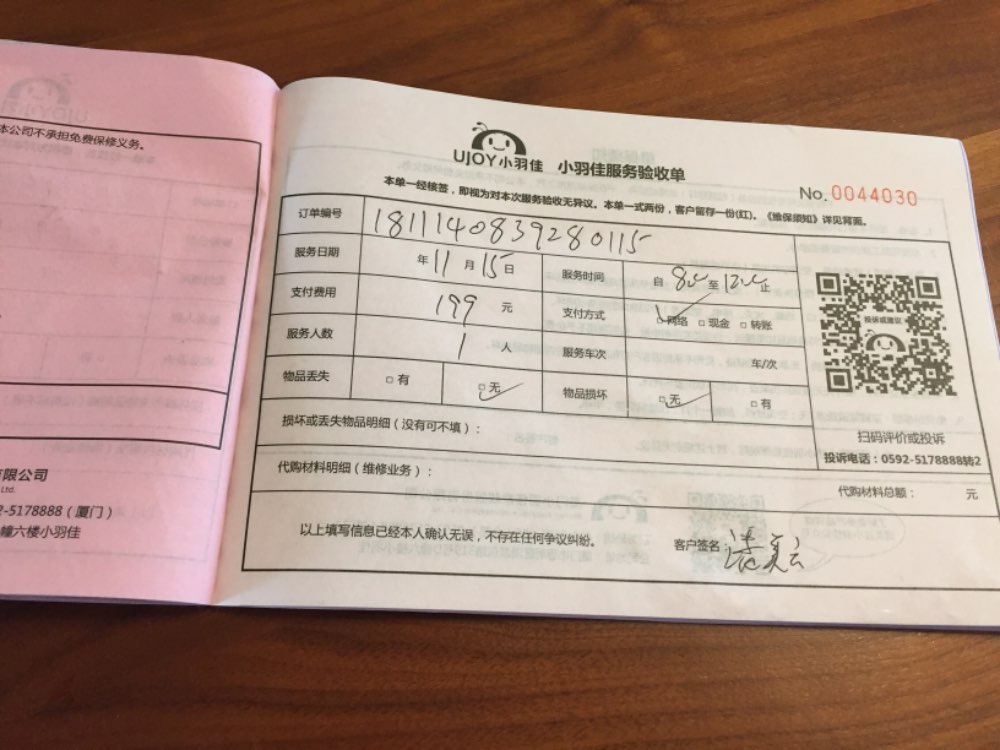 本公司不承担免费保修义务。
有限公司
Ltd.
2-5178888（厦门）
幢六楼小羽佳
UJOY小羽佳 小羽佳服务验收单
No.0044030
本单一经核签，即视为对本次服务验收无异议。本单一式两份，客户留存一份(红)。《维保须知》详见背面。
订单编号 1811140839280115
服务日期 年11月15日 服务时间 自8:00至12:00止
支付费用 199 元 支付方式 网络 现金 转账
服务人数 1 人 服务车次 车/次
物品丢失 有 无 物品损坏 无 有
投诉或建议
扫码评价或投诉
投诉电话：0592-5178888转2
损坏或丢失物品明细（没有可不填）：
代购材料明细（维修业务）：
代购材料总额： 元
以上填写信息已经本人确认无误，不存在任何争议纠纷。 客户签名：